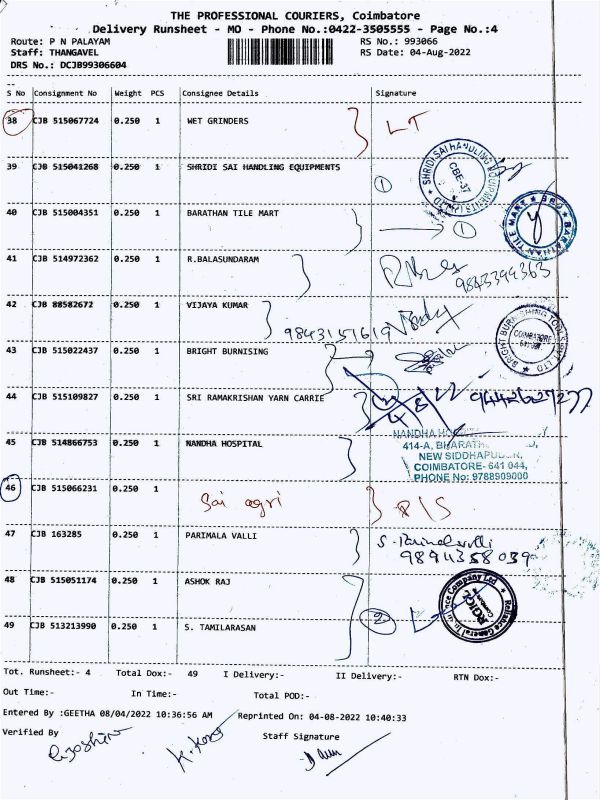 THE PROFESSIONAL COURIERS, Coimbatore
Delivery Runsheet - MO - Phone No.:0422-3505555 - Page No.:4
Route: P N PALAYAM RS No.: 993066
Staff: THANGAVEL RS Date: 04-Aug-2022
DRS No.: DCJB99306604
S No Consignment No Weight PCS Consignee Details Signature
38 CJB 515067724 0.250 1 WET GRINDERS LT
39 CJB 515041268 0.250 1 SHRIDI SAI HANDLING EQUIPMENTS 1
SHRIDI SAI HANDLING EQUIPMENTS
CBE-37
40 CJB 515004351 0.250 1 BARATHAN TILE MART 1
BARATHAN TILE MART
41 CJB 514972362 0.250 1 R.BALASUNDARAM
9843394363
42 CJB 88582672 0.250 1 VIJAYA KUMAR 9843151619
43 CJB 515022437 0.250 1 BRIGHT BURNISING
COIMBATORE
44 CJB 515109827 0.250 1 SRI RAMAKRISHAN YARN CARRIE
45 CJB 514866753 0.250 1 NANDHA HOSPITAL
NANDHA
414-A,
NEW
COIMBATORE- 641 044,
PHONE No: 9788909000
46 CJB 515066231 0.250 1 Sai agri R/S
47 CJB 163285 0.250 1 PARIMALA VALLI
9894358039
48 CJB 515051174 0.250 1 ASHOK RAJ
2
Reliance General Insurance Company Ltd
RGICL
49 CJB 513213990 0.250 1 S. TAMILARASAN
Tot. Runsheet:- 4 Total Dox:- 49 I Delivery:- II Delivery:- RTN Dox:-
Out Time:- In Time:- Total POD:-
Entered By :GEETHA 08/04/2022 10:36:56 AM Reprinted On: 04-08-2022 10:40:33
Verified By Staff Signature